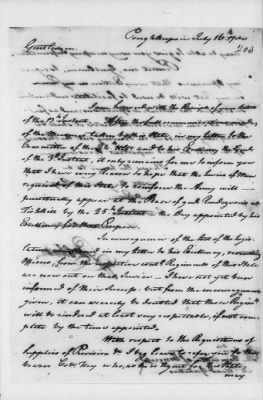 Poughkeepsie July 16th 1780
203
Gentlemen
I am honored with the Receipt of your letter
of the 13th Instant. After the full communication
of the Measures taken by this State, in my letter to the
Committee of the 22d and to his Excellency the Genl
of the 3d Instant, it only remains for me to inform you
that I have every Reason to hope that the Levies of Men
required of this State to reinforce the Army will
punctually appear at the Place of genl Rendezvous at
Fishkill by the 25th Instant the Day appointed by his
Excellency for that Purpose.
In consequence of the of the legis-
lature in my letter to his Excellency, recruiting
Officers, from the Regiments of this
are now out on that Service. I have not yet been
informed of their Success but from the encouragement
given, it can scarcely be doubted that those Regimts
will be rendered at least very respectable, if not com-
pleat by the time appointed.
With respect to the Requisitions of
Supplies of Provision &c I beg Leave to refer you to
who, as the Agent for this State,
may